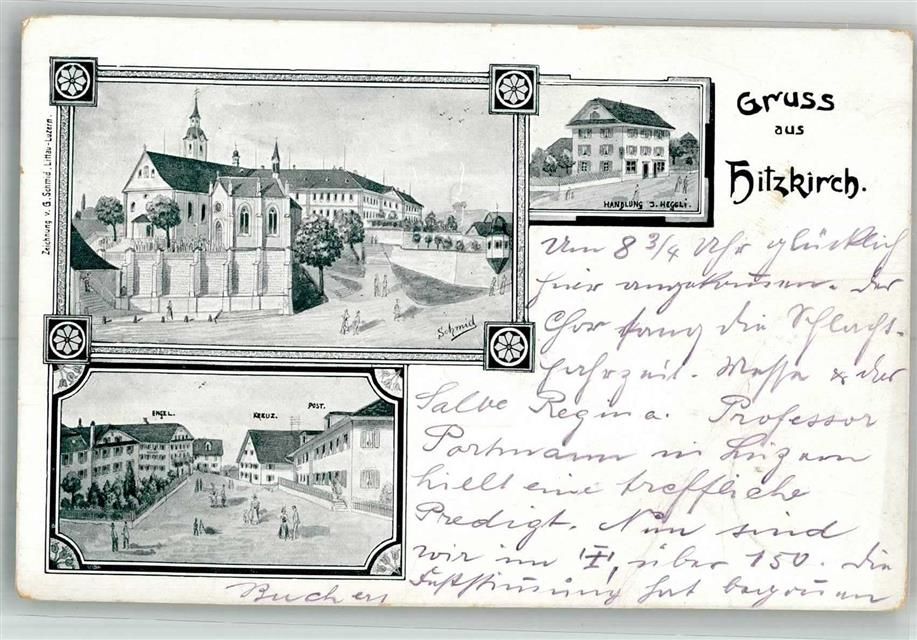 Gruss
aus
Hitzkirch.
Zeichnung v. G. Schmid, Littau-Luzern.
HANDLUNG J. HEGGLI.
Schmid
ENGEL.
KREUZ.
POST.
Um 8 3/4 Uhr glücklich
hier angekommen. Der
Chor sang die Schlacht-
Jahrzeit. Messe & das
Salve Regina. Professor
Portmann in Luzern
hielt eine treffliche
Predigt. Nun sind
wir im über 150. Die
Feststimmung hat begonnen
Bucher